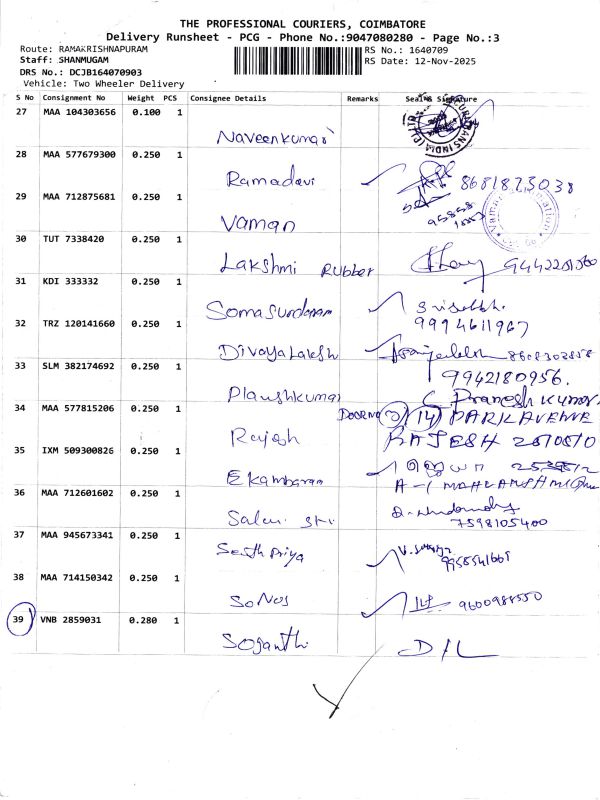 THE PROFESSIONAL COURIERS, COIMBATORE
Delivery Runsheet - PCG - Phone No.:9047080280 - Page No.:3
Route: RAMAKRISHNAPURAM
RS No.: 1640709
Staff: SHANMUGAM
RS Date: 12-Nov-2025
DRS No.: DCJB164070903
Vehicle: Two Wheeler Delivery
S No Consignment No Weight PCS Consignee Details Remarks Seal & Signature
27 MAA 104303656 0.100 1
Naveenkumar
28 MAA 577679300 0.250 1
Ramadevi
29 MAA 712875681 0.250 1
Vaman
30 TUT 7338420 0.250 1
Lakshmi Rubber
31 KDI 333332 0.250 1
Somasundaram
9994611967
32 TRZ 120141660 0.250 1
Divayalaksh
33 SLM 382174692 0.250 1
9942180956.
Plaushkumar
Pranesh Kumar
34 MAA 577815206 0.250 1
DOORNO 3/14 PARK AVENUE
Rajesh
RAJESH
35 IXM 509300826 0.250 1
Ekambaram
36 MAA 712601602 0.250 1
Salem Sri
7598105400
37 MAA 945673341 0.250 1
SenthPriya
38 MAA 714150342 0.250 1
SoNas
9600988550
39 VNB 2859031 0.280 1
Soganthi
D/L